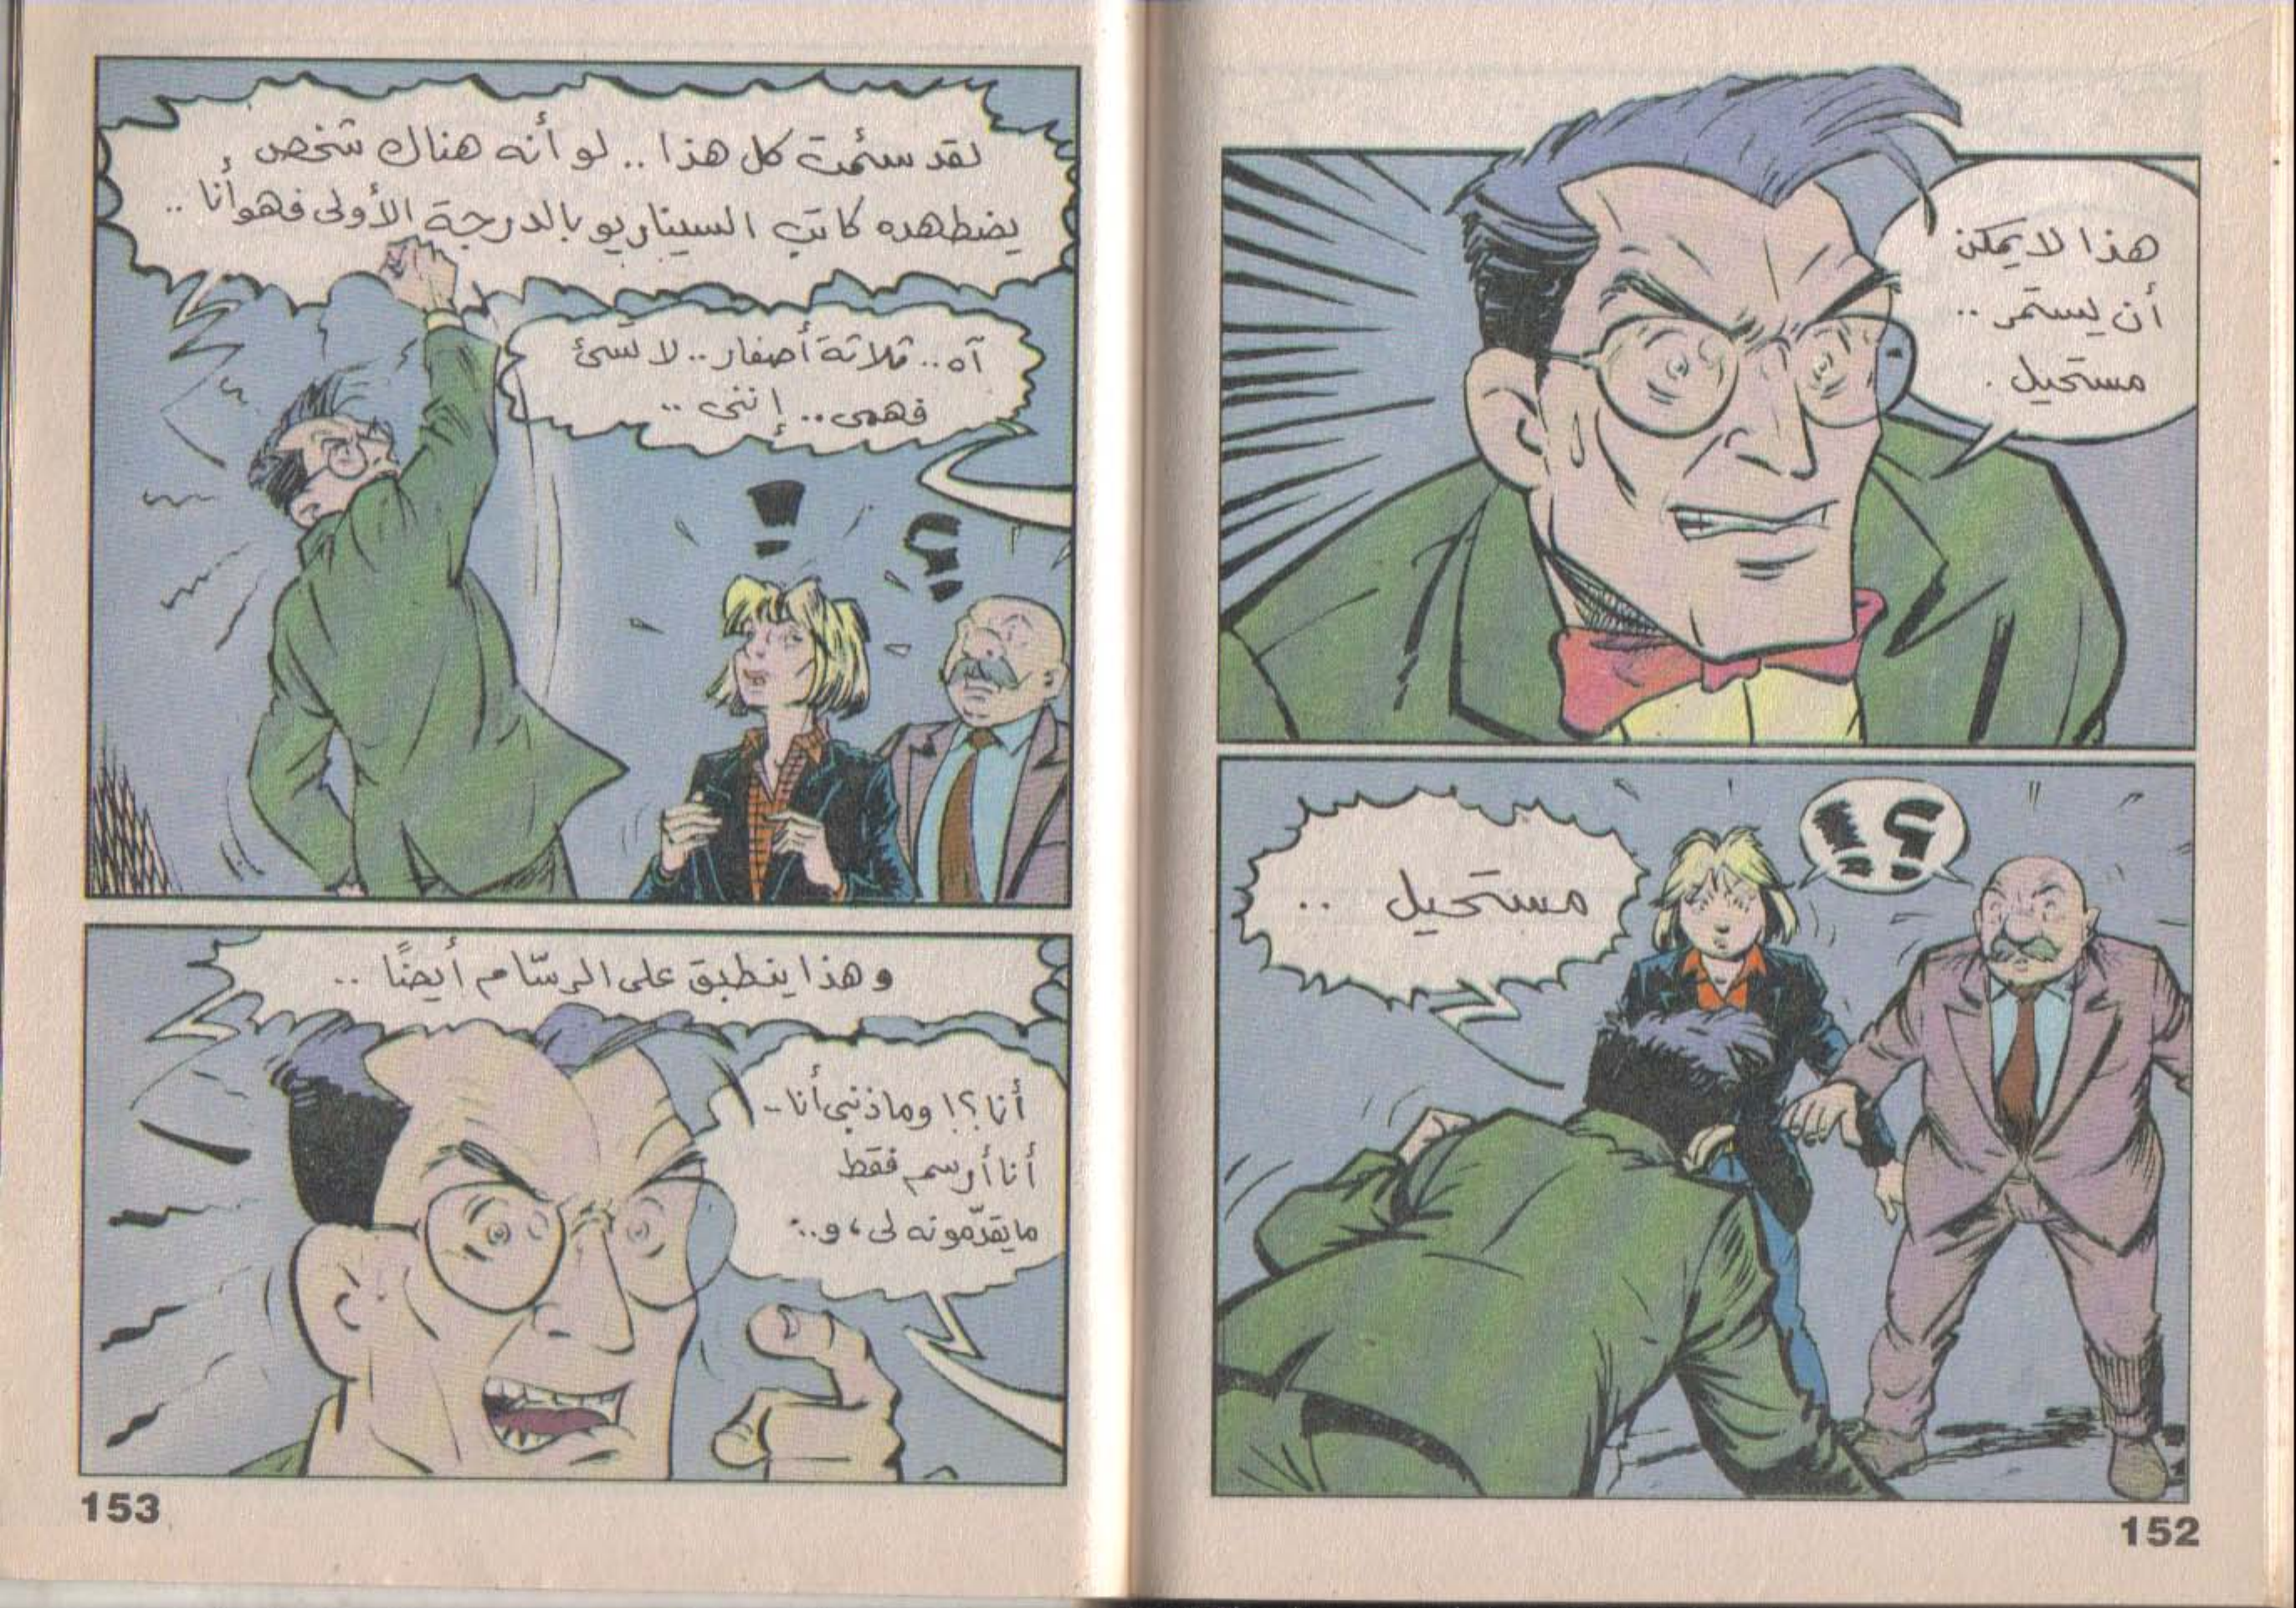 هذا لا يمكن
أن يستمر ..
مستحيل .
؟!
مستحيل ..
152
لقد سئمت كل هذا .. لو أنه هناك شخص
يضطهده كاتب السيناريو بالدرجة الأولى فهو أنا ..
آه .. ثلاثة أصفار .. لا شئ
فهمى .. إننى ..
؟
!
وهذا ينطبق على الرسّام أيضًا ..
أنا ؟! وما ذنبى أنا ..
أنا أرسم فقط
ما يقدّمونه لى ، و ..
153